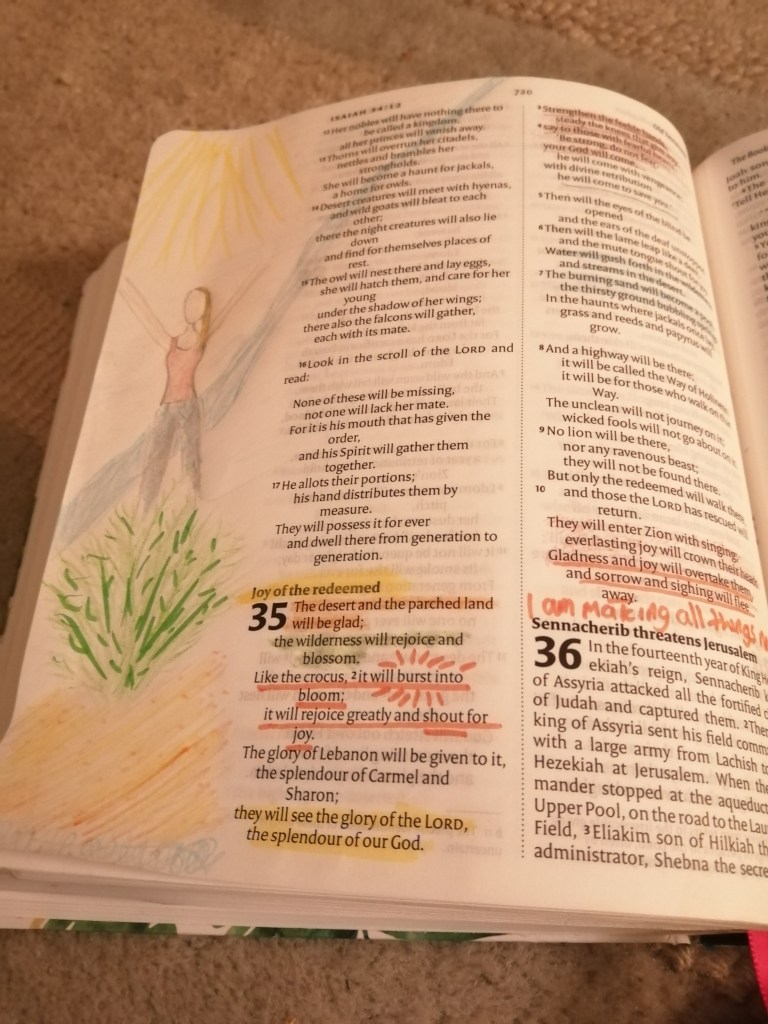 ISAIAH 34:12
720
12 Her nobles will have nothing there to
be called a kingdom,
all her princes will vanish away.
13 Thorns will overrun her citadels,
nettles and brambles her
strongholds.
She will become a haunt for jackals,
a home for owls.
14 Desert creatures will meet with hyenas,
and wild goats will bleat to each
other;
there the night creatures will also lie
down
and find for themselves places of
rest.
15 The owl will nest there and lay eggs,
she will hatch them, and care for her
young
under the shadow of her wings;
there also the falcons will gather,
each with its mate.
16 Look in the scroll of the LORD and
read:
None of these will be missing,
not one will lack her mate.
For it is his mouth that has given the
order,
and his Spirit will gather them
together.
17 He allots their portions;
his hand distributes them by
measure.
They will possess it for ever
and dwell there from generation to
generation.
Joy of the redeemed
35 The desert and the parched land
will be glad;
the wilderness will rejoice and
blossom.
Like the crocus, 2 it will burst into
bloom;
it will rejoice greatly and shout for
joy.
The glory of Lebanon will be given to it,
the splendour of Carmel and
Sharon;
they will see the glory of the LORD,
the splendour of our God.
3 Strengthen the feeble hands,
steady the knees that
4 say to those with fearful
Be strong, do not
your God will come,
he will come with vengeance
with divine retribution
he will come to save you.
5 Then will the eyes of the blind be
opened
and the ears of the deaf
6 Then will the lame leap like a
and the mute tongue shout
Water will gush forth in the
and streams in the desert.
7 The burning sand will become a
the thirsty ground bubbling
In the haunts where jackals once
grass and reeds and papyrus will
grow.
8 And a highway will be there;
it will be called the Way of Holiness
it will be for those who walk on that
Way.
The unclean will not journey on it;
wicked fools will not go about on it.
9 No lion will be there,
nor any ravenous beast;
they will not be found there.
But only the redeemed will walk there,
10 and those the LORD has rescued will
return.
They will enter Zion with singing;
everlasting joy will crown their heads
Gladness and joy will overtake them,
and sorrow and sighing will flee
away.
I am making all things
Sennacherib threatens Jerusalem
36 In the fourteenth year of King
ekiah's reign, Sennacherib
of Assyria attacked all the fortified
of Judah and captured them. 2 Then
king of Assyria sent his field com
with a large army from Lachish to
Hezekiah at Jerusalem. When the
mander stopped at the aqueduct
Upper Pool, on the road to the Lau
Field, 3 Eliakim son of Hilkiah th
administrator, Shebna the secre